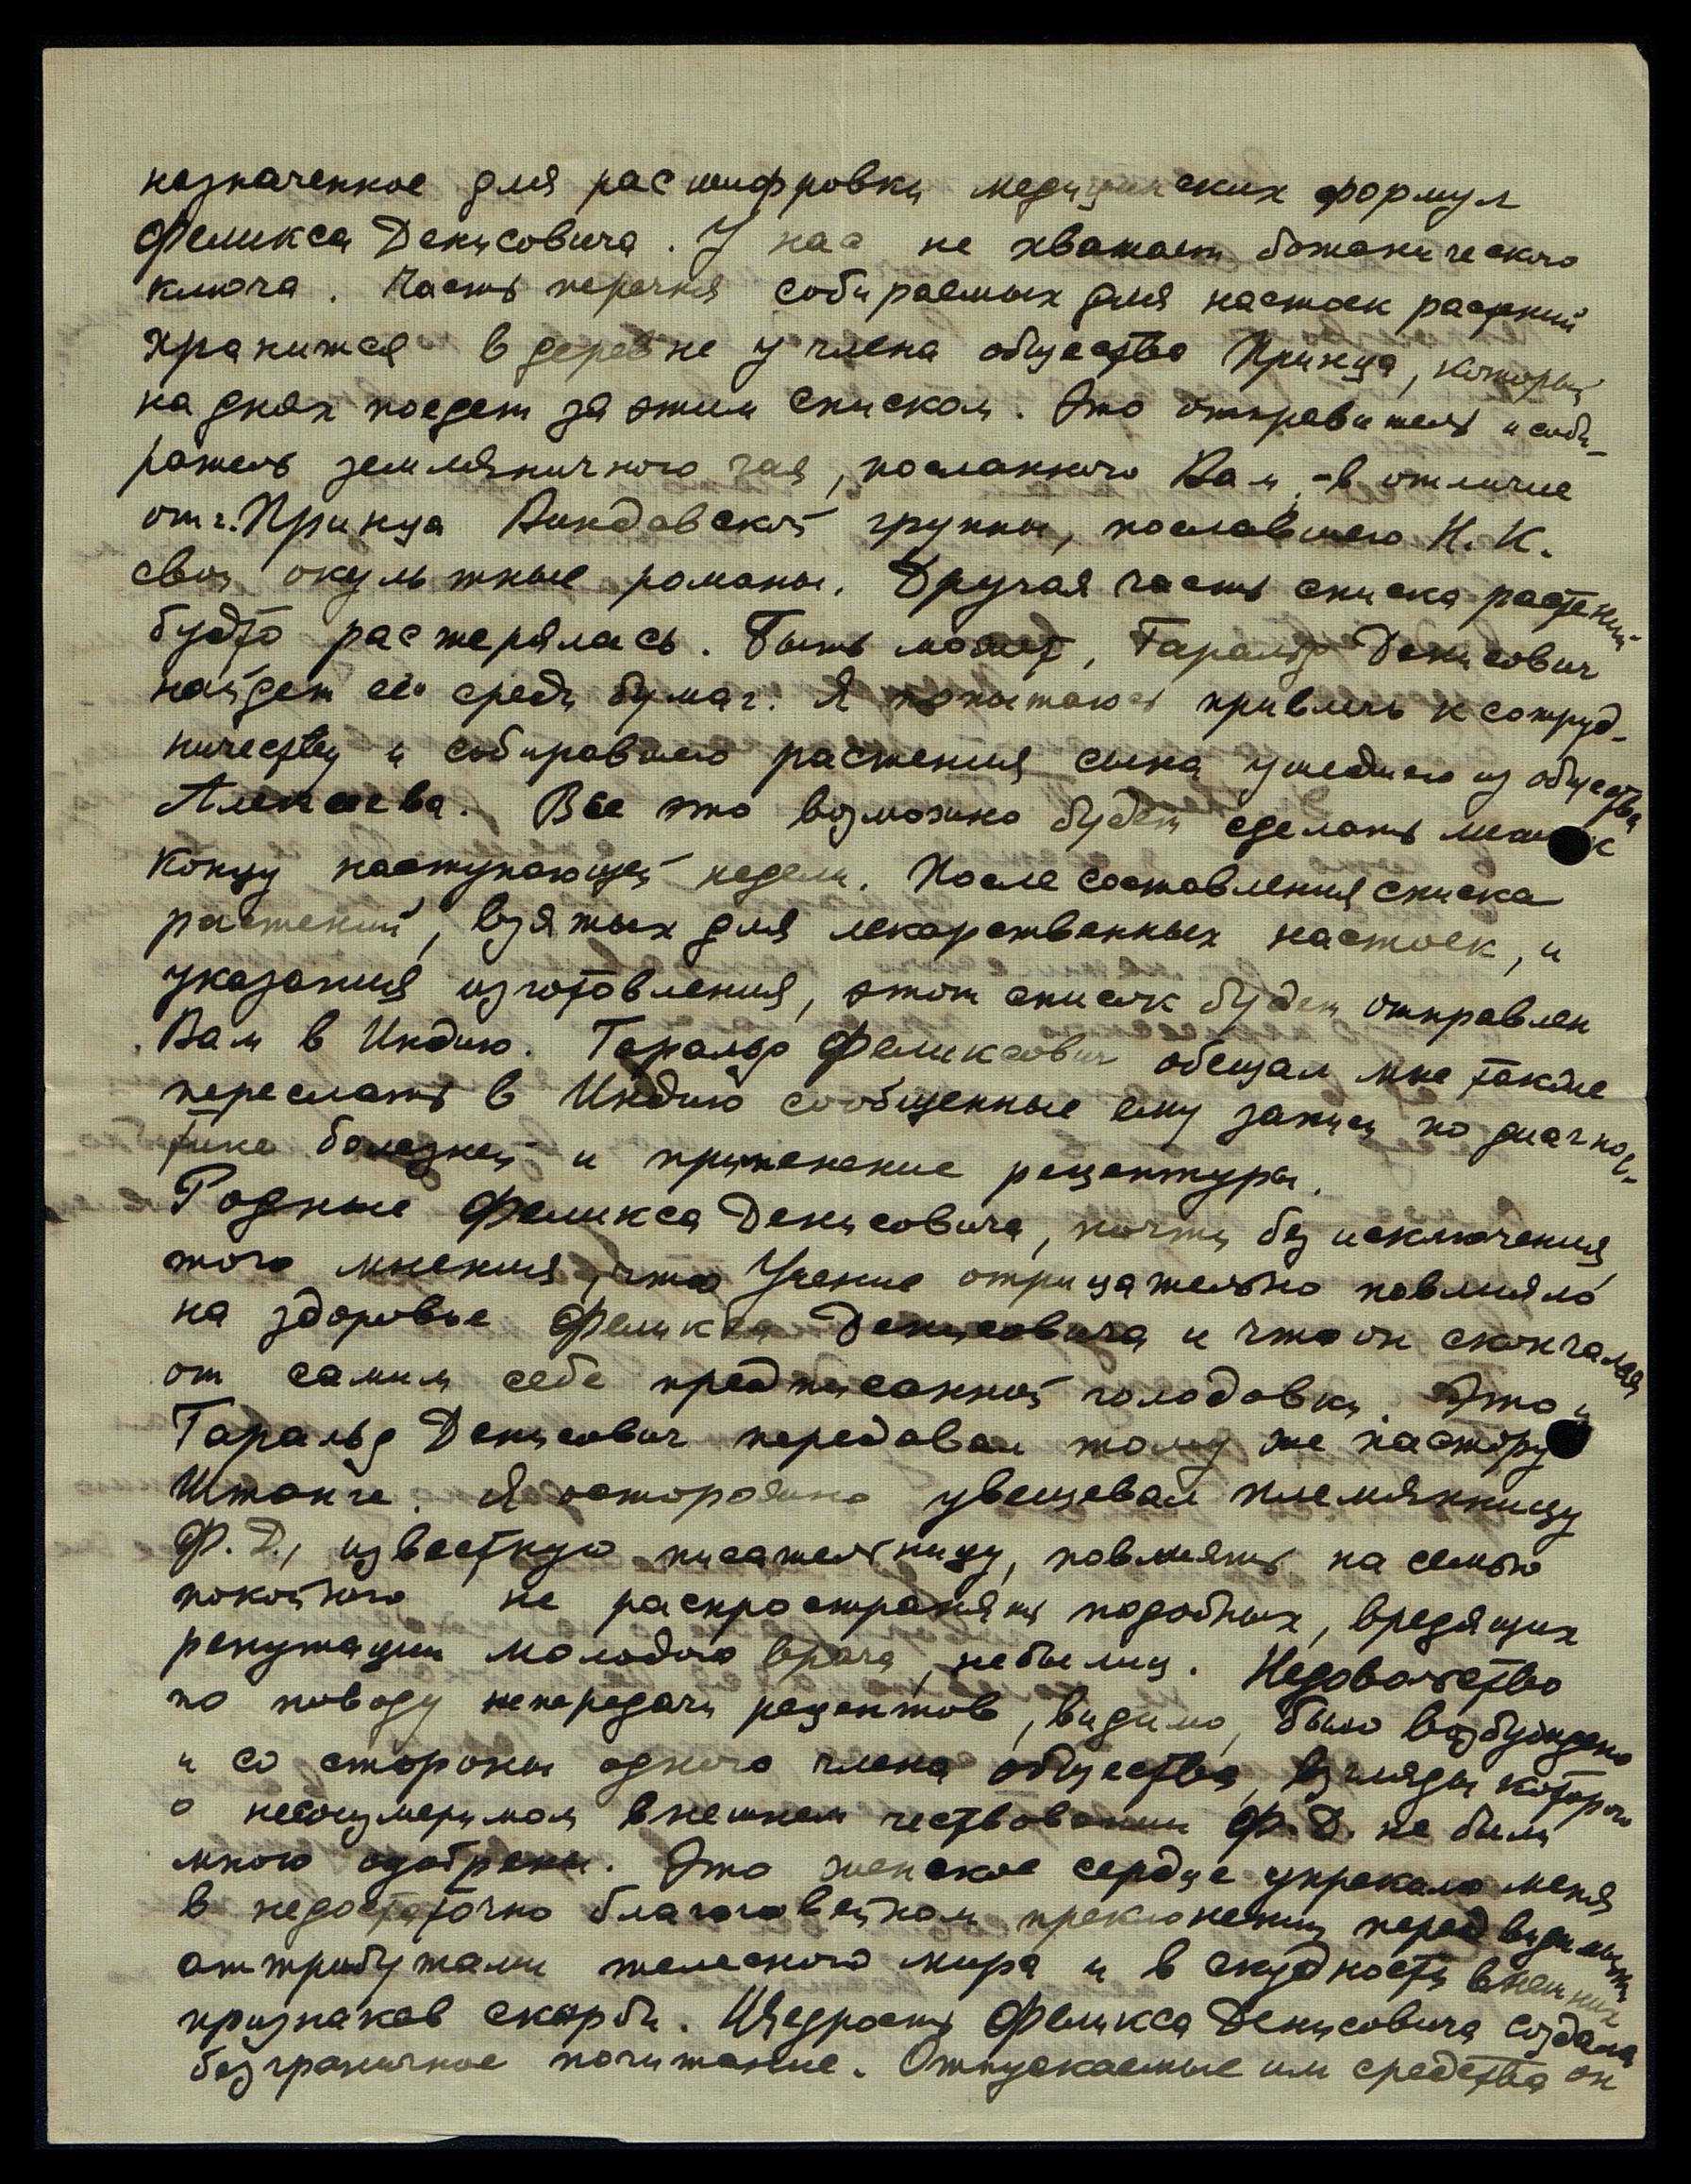 назначенное для расшифровки медицинских формул
Феликса Денисовича. У нас не хватает ботанического
ключа. Часть перечня собираемых для настоек растений
хранится в деревне у члена общества Принца, который
на днях поедет за этим списком. Это отправитель и соби-
ратель земляничного чая, посланного Вам, - в отличие
от г. Принца Виндавской группы, пославшего Н. К.
свои окультные романы. Другая часть списка растений
будто растерялась. Быть может, Гаральд Денисович
найдет её среди бумаг. Я попытаюсь привлечь к сотруд-
ничеству и собиравшего растения сына ушедшего из общества
Алексеева. Все это возможно будет сделать лишь к
концу наступающей недели. После составления списка
растений, взятых для лекарственных настоек, и
указания изготовления, этот список будет отправлен
Вам в Индию. Гаральд Феликсович обещал мне также
переслать в Индию сообщенные ему записи по диагнос-
тике болезней и применение рецептуры.
Родные Феликса Денисовича, почти без исключения,
того мнения, что Учение отрицательно повлияло
на здоровье Феликса Денисовича и что он скончался
от самим себе предписанной голодовки. Это и
Гаральд Денисович передавал тому же пастору
Штанге. Я осторожно увещевал племянницу
Ф. Д., известную писательницу, повлиять на семью
покойного не распространять подобных, вредящих
репутации молодого врача, небылиц. Недовольство
по поводу непередачи рецептов, видимо, было возбуждено
и со стороны одного члена общества, взгляды которого
о несоизмеримом внешнем чествовании Ф. Д. не были
мною одобрены. Это женское сердце упрекало меня
в недостаточно благоговейном преклонении перед видимыми
аттрибутами телесного мира и в скудности внешних
признаков скорби. Щедрость Феликса Денисовича создала
безграничное почитание. Отпускаемые им средства он